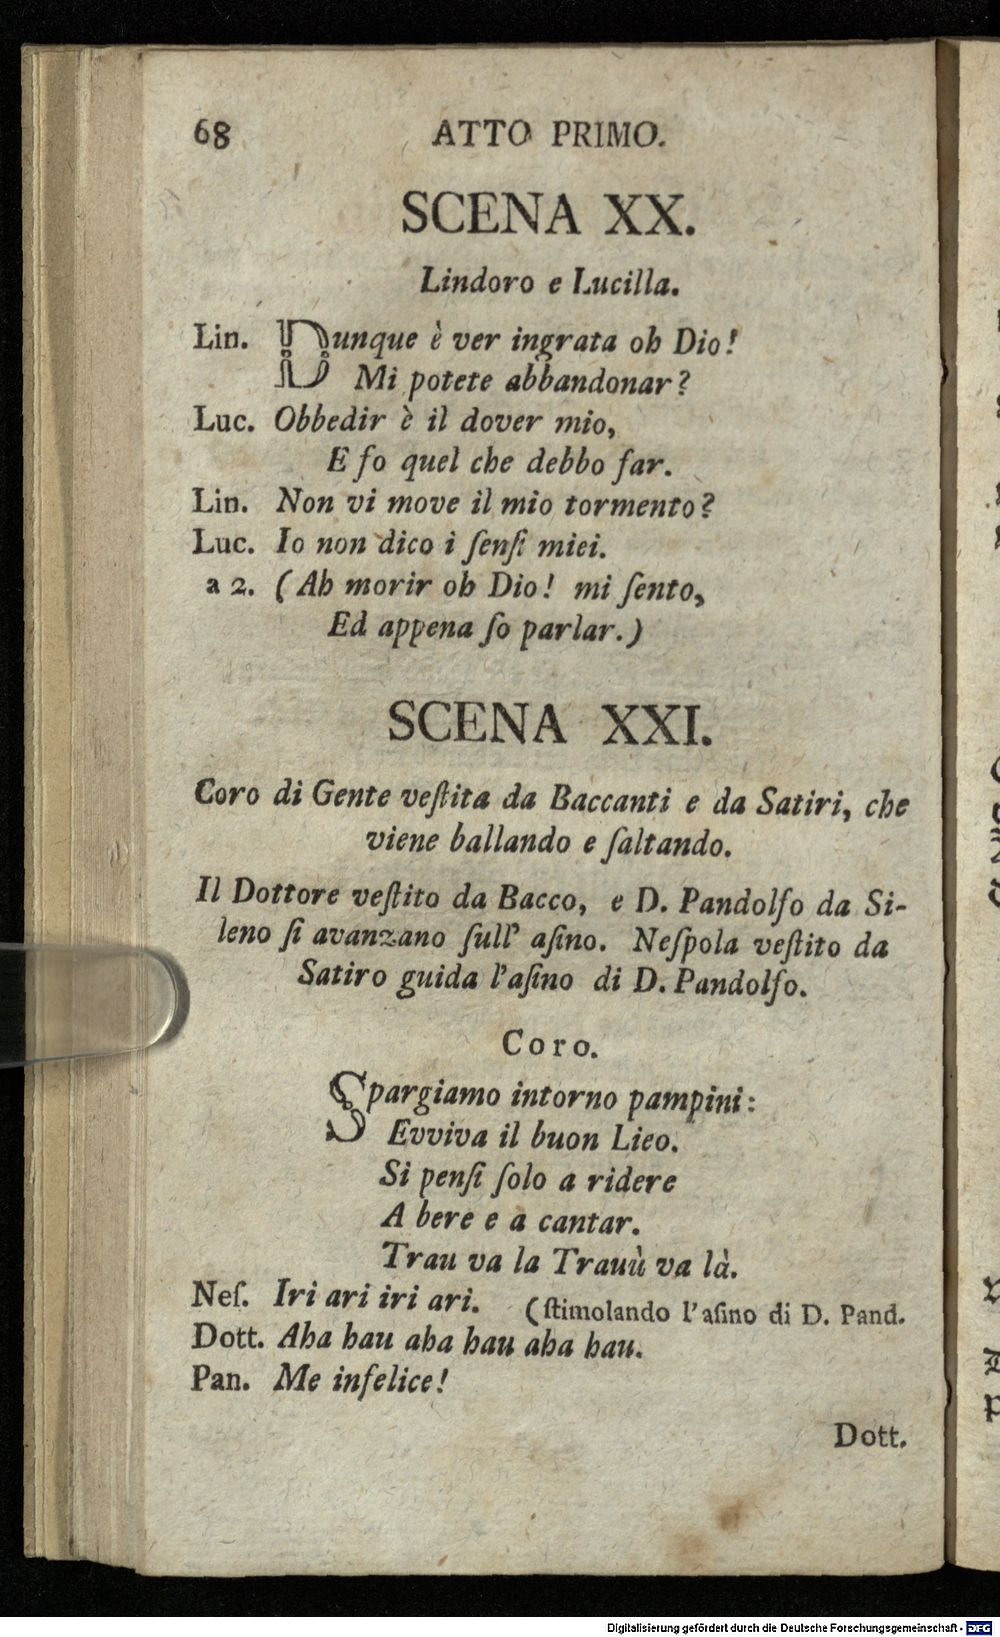 68 ATTO PRIMO.
SCENA XX.
Lindoro e Lucilla.
Lin. Dunque è ver ingrata oh Dio!
Mi potete abbandonar?
Luc. Obbedir è il dover mio,
E fo quel che debbo far.
Lin. Non vi move il mio tormento?
Luc. Io non dico i ſenſi miei.
a 2. (Ah morir oh Dio! mi ſento,
Ed appena ſo parlar.)
SCENA XXI.
Coro di Gente veſtita da Baccanti e da Satiri, che
viene ballando e ſaltando.
Il Dottore veſtito da Bacco, e D. Pandolfo da Si-
leno ſi avanzano ſull' aſino. Neſpola veſtito da
Satiro guida l'aſino di D. Pandolfo.
Coro.
Spargiamo intorno pampini:
Evviva il buon Lieo.
Si penſi ſolo a ridere
A bere e a cantar.
Trau va la Trauù va là.
Neſ. Iri ari iri ari. (ſtimolando l'aſino di D. Pand.
Dott. Aha hau aha hau aha hau.
Pan. Me infelice!
Dott.
Digitalisierung gefördert durch die Deutsche Forschungsgemeinschaft - DFG